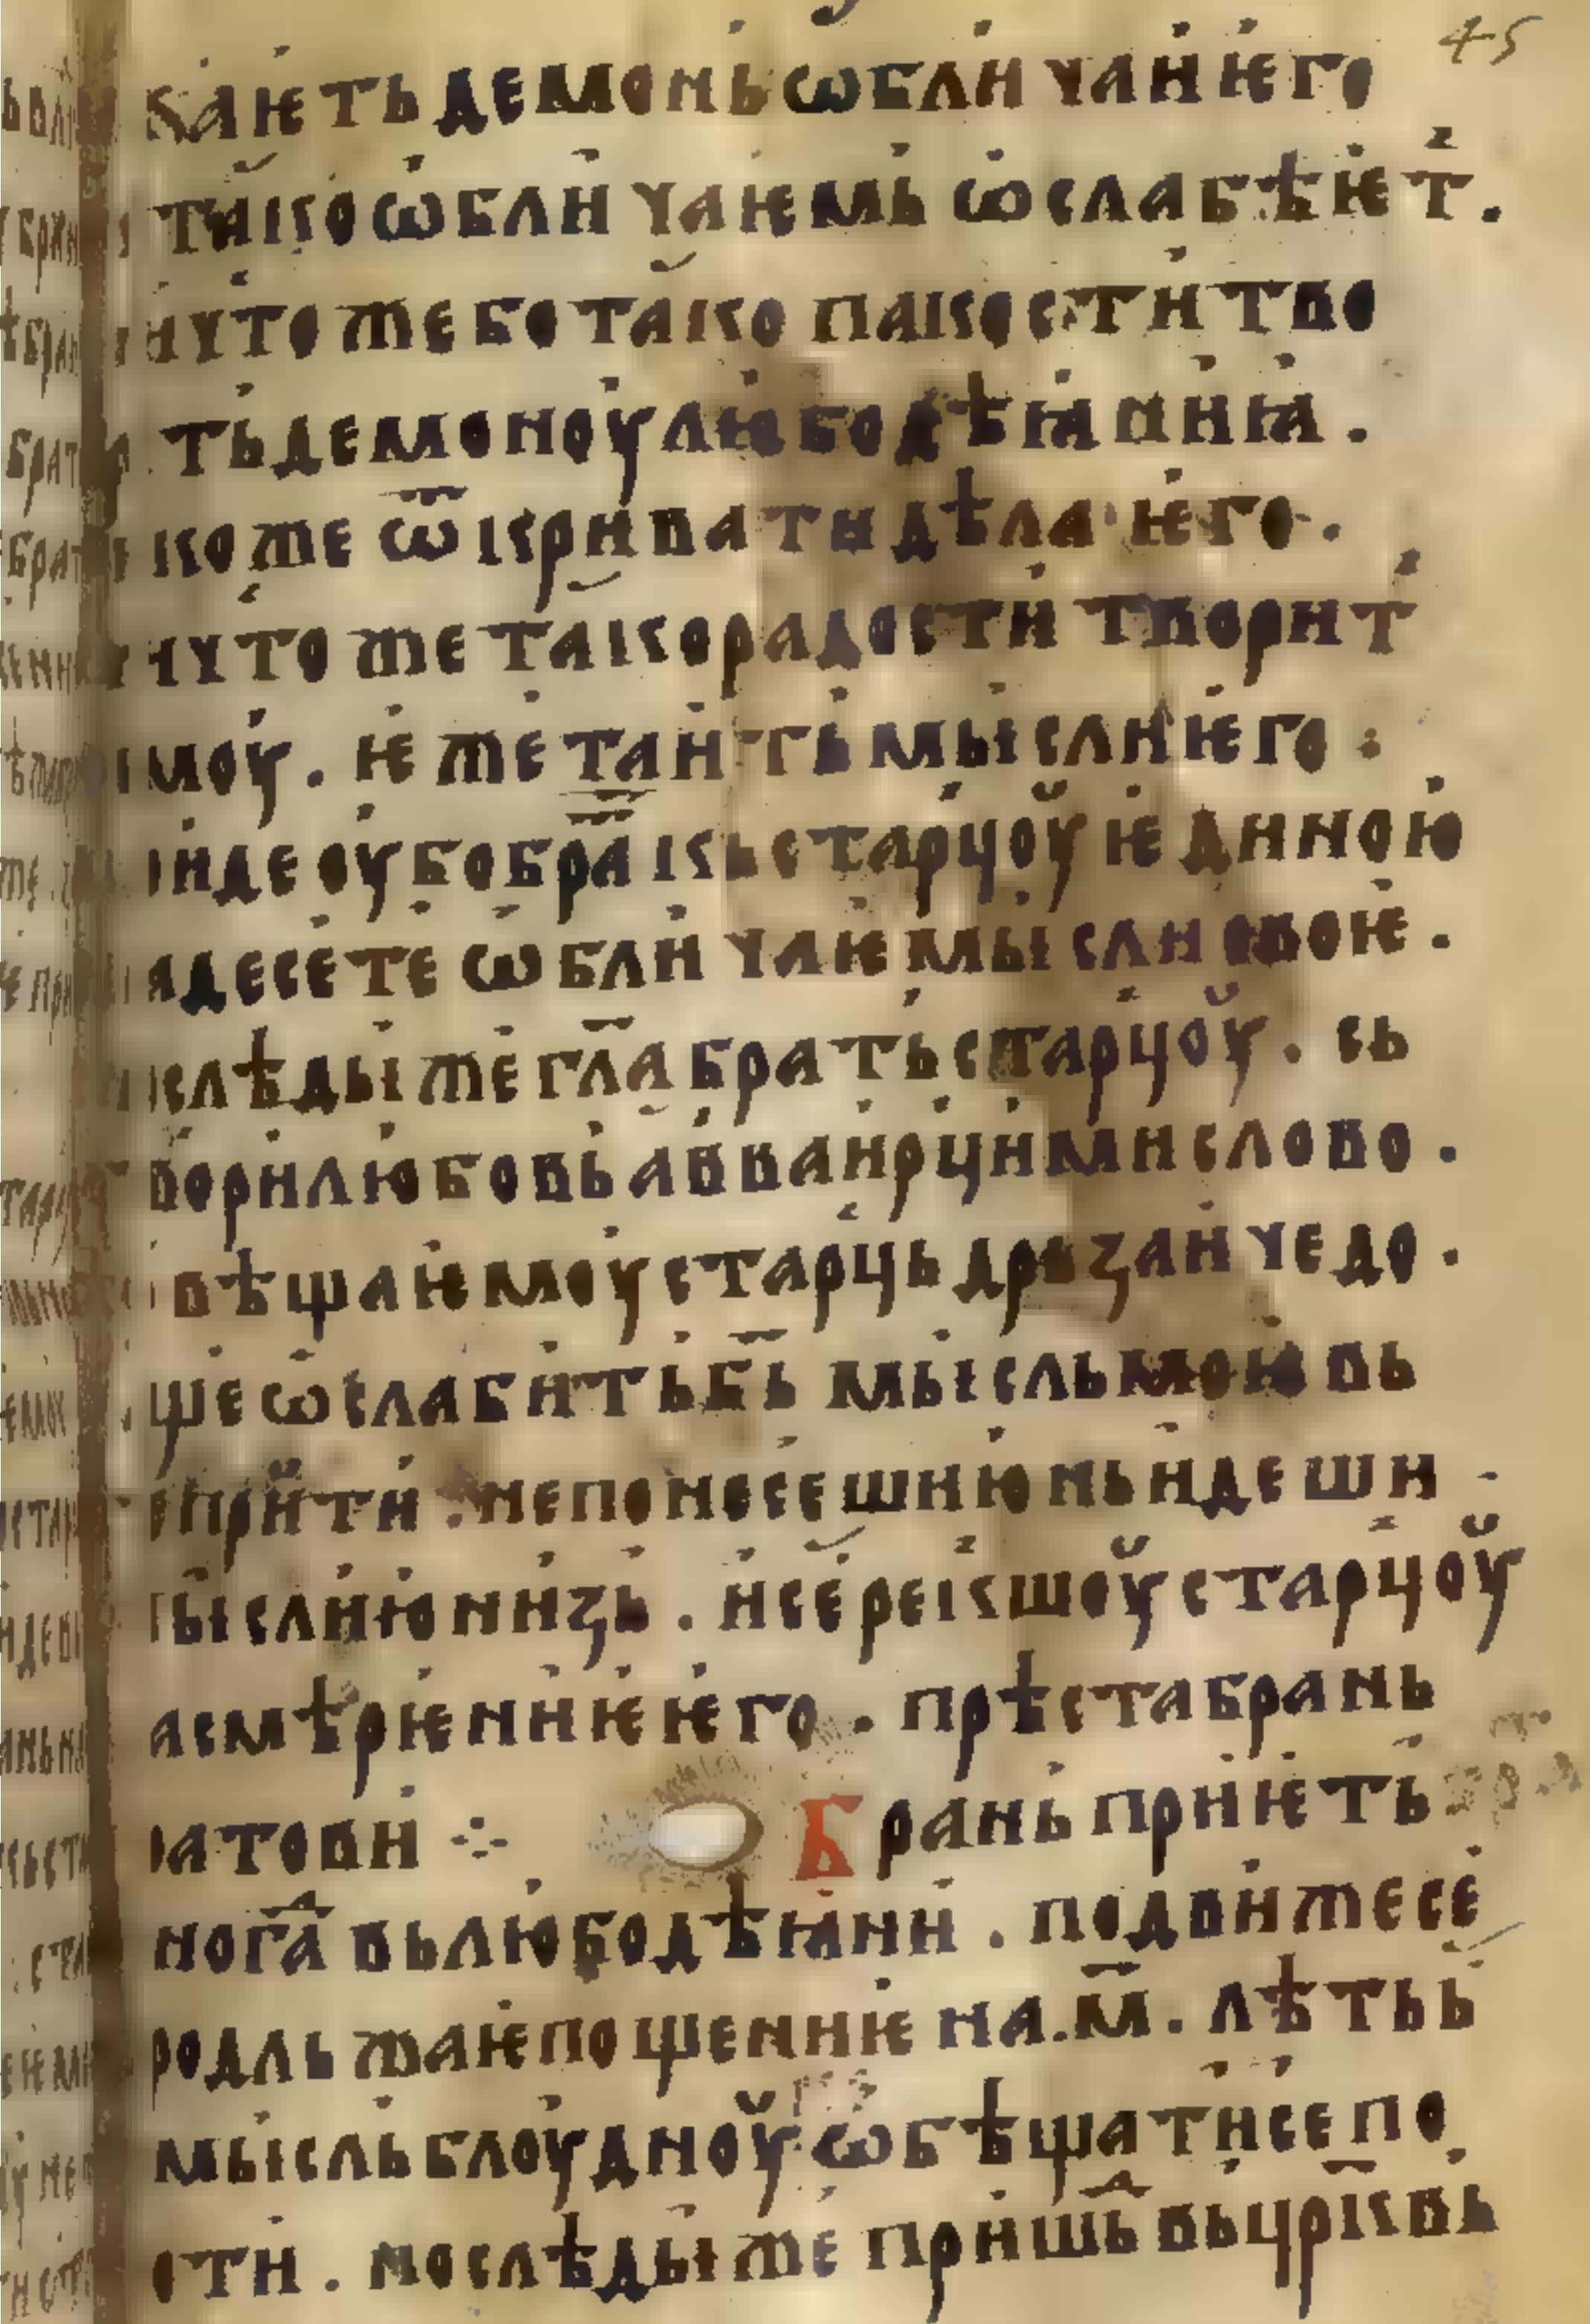 45
каѥть демонь ѡбличаниѥго
тако ѡбличаѥмь ѡслабѣѥт҇.
ничтоже бо тако пакости тво
ть демоноу любодѣꙗниꙗ.
коже ѿкривати дѣла ѥго.
ичтоже тако радости творит
моу. ѥже таити мысли ѥго :
иде оубо бра҇ кь старцоу ѥдиною
адесете ѡбличаѥ мысли своѥ.
слѣдыже гл҃а брать старцоу. сь
вори любовь авва и рци ми слово.
вѣща ѥмоу старць дрьзаи чедо.
ще ѡслабить б҃ь мысль мою вь
прити. не понесеши ю нь идеши
ысли ю низь. и се рекшоу старцоу
а смѣрѥниѥ ѥго. прѣста брань
атови ⁘ Брань приѥть
нога҇ вь любодѣꙗнии. подвиже се
родльжаѥ пощениѥ на .м҃. лѣть ь
мысль блоудноу ѡбѣщати се по
сти. послѣдыже пришь҇ вь цр҃квь